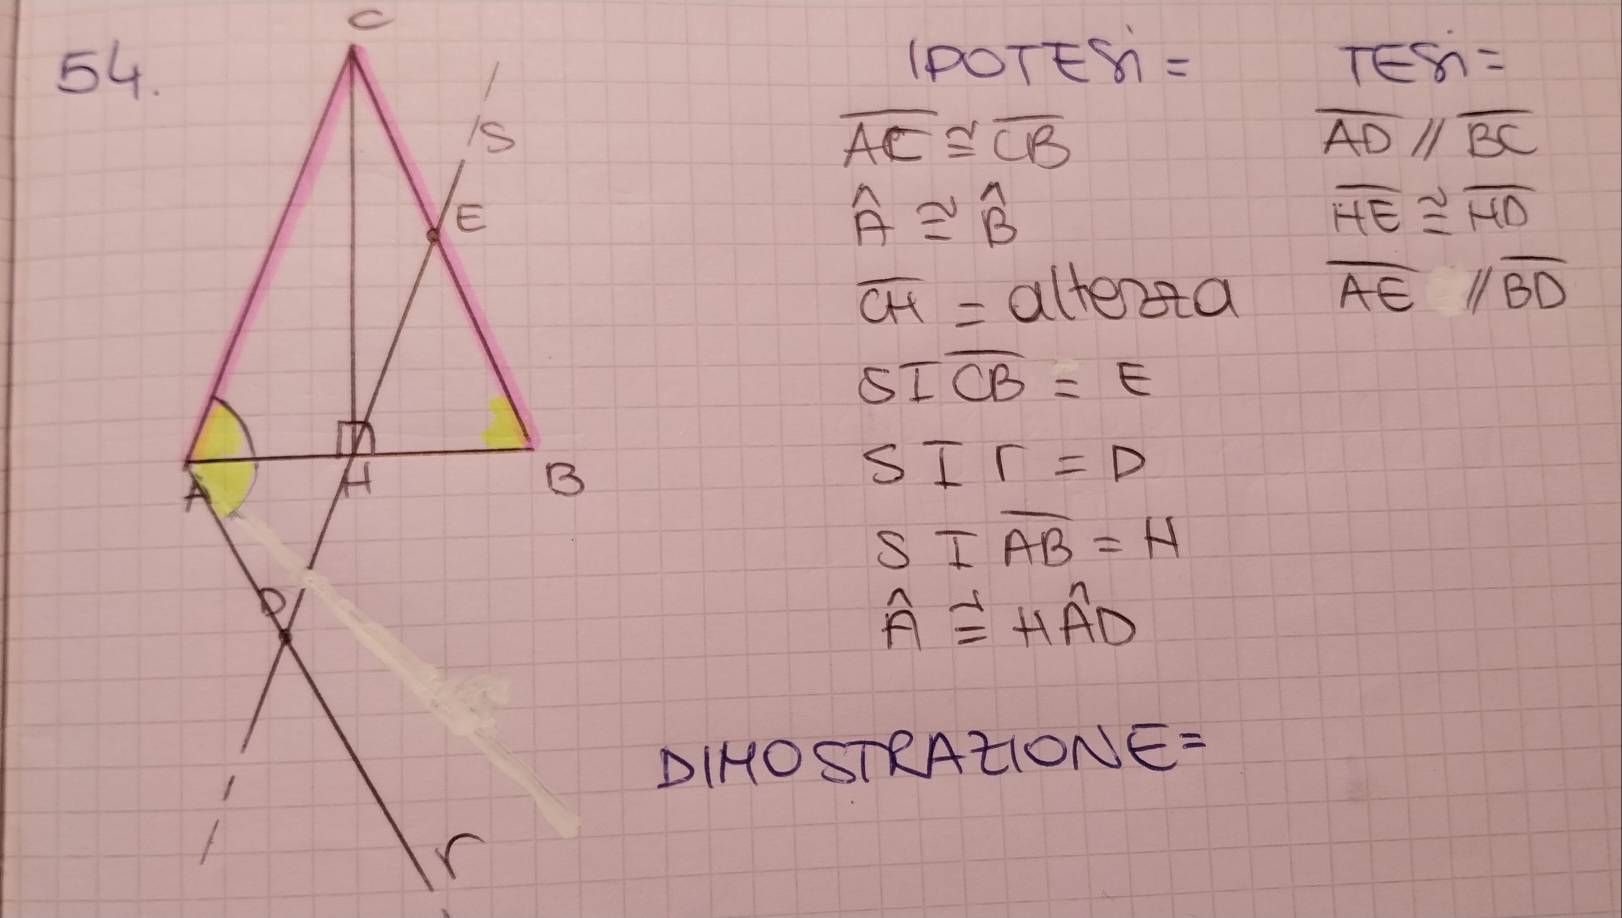 54.
C
S
E
A
H
B
D
r
IPOTESi =
AC ≅ CB
Â ≅ B̂
CH = altezza
S I CB = E
S I r = D
S I AB = H
Â ≅ HÂD
TESi =
AD // BC
HE ≅ HD
AE // BD
DIMOSTRAZIONE =